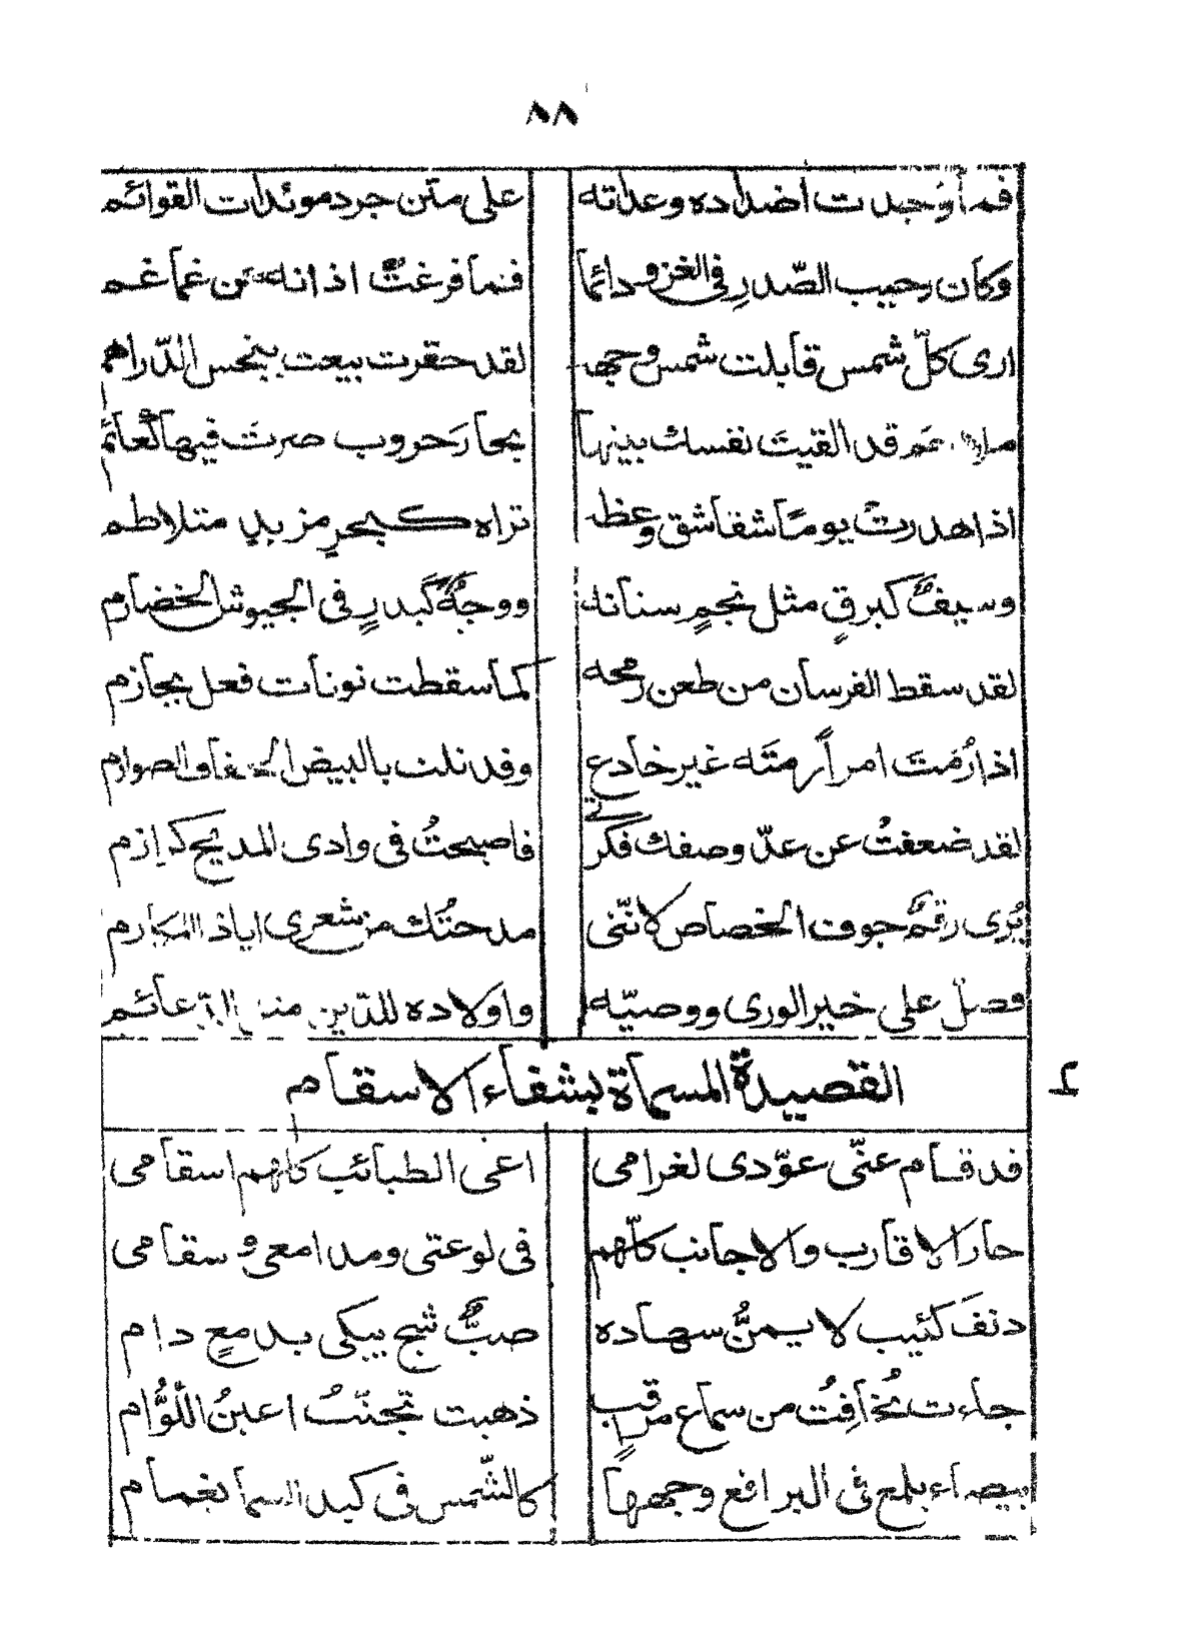 ٨٨
فما وُجدت اضداده وعداته على متن جرد موئدات القوائم
وكان رحيب الصّدرِ فى الغزو دائما فما فرغتْ اذانه عن غماغم
ارى كلّ شمس قابلت شمس وجهه لقد حقرت بيعت ببخس الدّراهم
قد القيتَ نفسك بينها بحارَ حروب صرتَ فيها كعائم
اذا هدرتْ يومًا شقاشق وعظه تراه كبحرٍ مزبدٍ متلاطم
وسيفٌ كبرقٍ مثل نجمٍ سنانه ووجهٌ كبدرٍ فى الجيوش الخضارم
لقد سقط الفرسان من طعن رمحه كما سقطت نونات فعل بجازم
اذا رُمتَ امراً رمتَه غير خادع وقد نلت بالبيض الخفاف الصوارم
لقد ضعفتُ عن عدّ وصفك فكرتى فاصبحتُ فى وادى المديح كرازم
يُرى رقمٌ جوف الخصاص لانّنى مدحتُك من شعرى اياذا المكارم
فصلّ على خير الورى ووصيّه واولاده للدّين الدّعائم
القصيدة المسماة بشفاء الاسقام
٤
قد قام عنّى عوّدى لغرامى اعى الطبائب كلهم اسقامى
حار الاقارب والاجانب كلّهم فى لوعتى ومدامعى وسقامى
دنفَ كئيب لا يمنُّ سهاده صبٌّ شج يبكى بدمعٍ دام
جاءت تُخافِتُ من سماع مراقبٍ ذهبت تجنّبُ اعينُ اللُّوَّام
بيضاء يلمع فى البراقع وجهها كالشّمس فى كبد السما بغمام